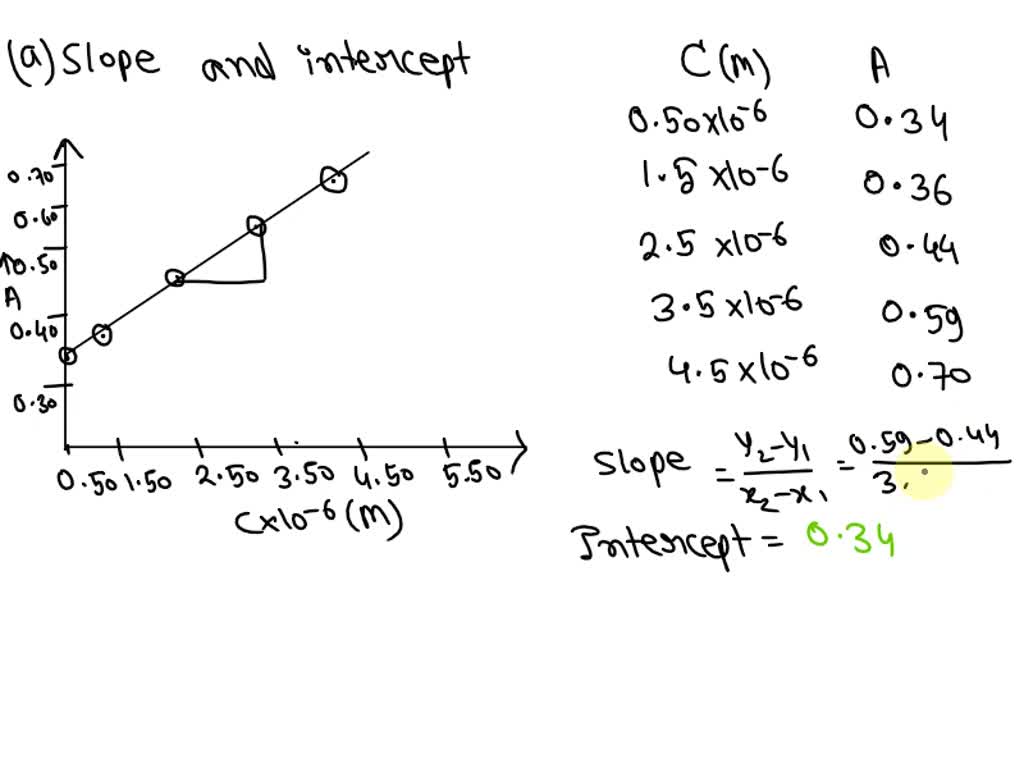 (a) Slope and intercept
C(m) A
0.50×10⁻⁶ 0.34
1.5×10⁻⁶ 0.36
2.5×10⁻⁶ 0.44
3.5×10⁻⁶ 0.59
4.5×10⁻⁶ 0.70
0.70
0.60
↑0.50
A
0.40
0.30
0.50 1.50 2.50 3.50 4.50 5.50
C×10⁻⁶(M)
Slope = y₂-y₁/x₂-x₁ = 0.59-0.44/3.
Intercept = 0.34